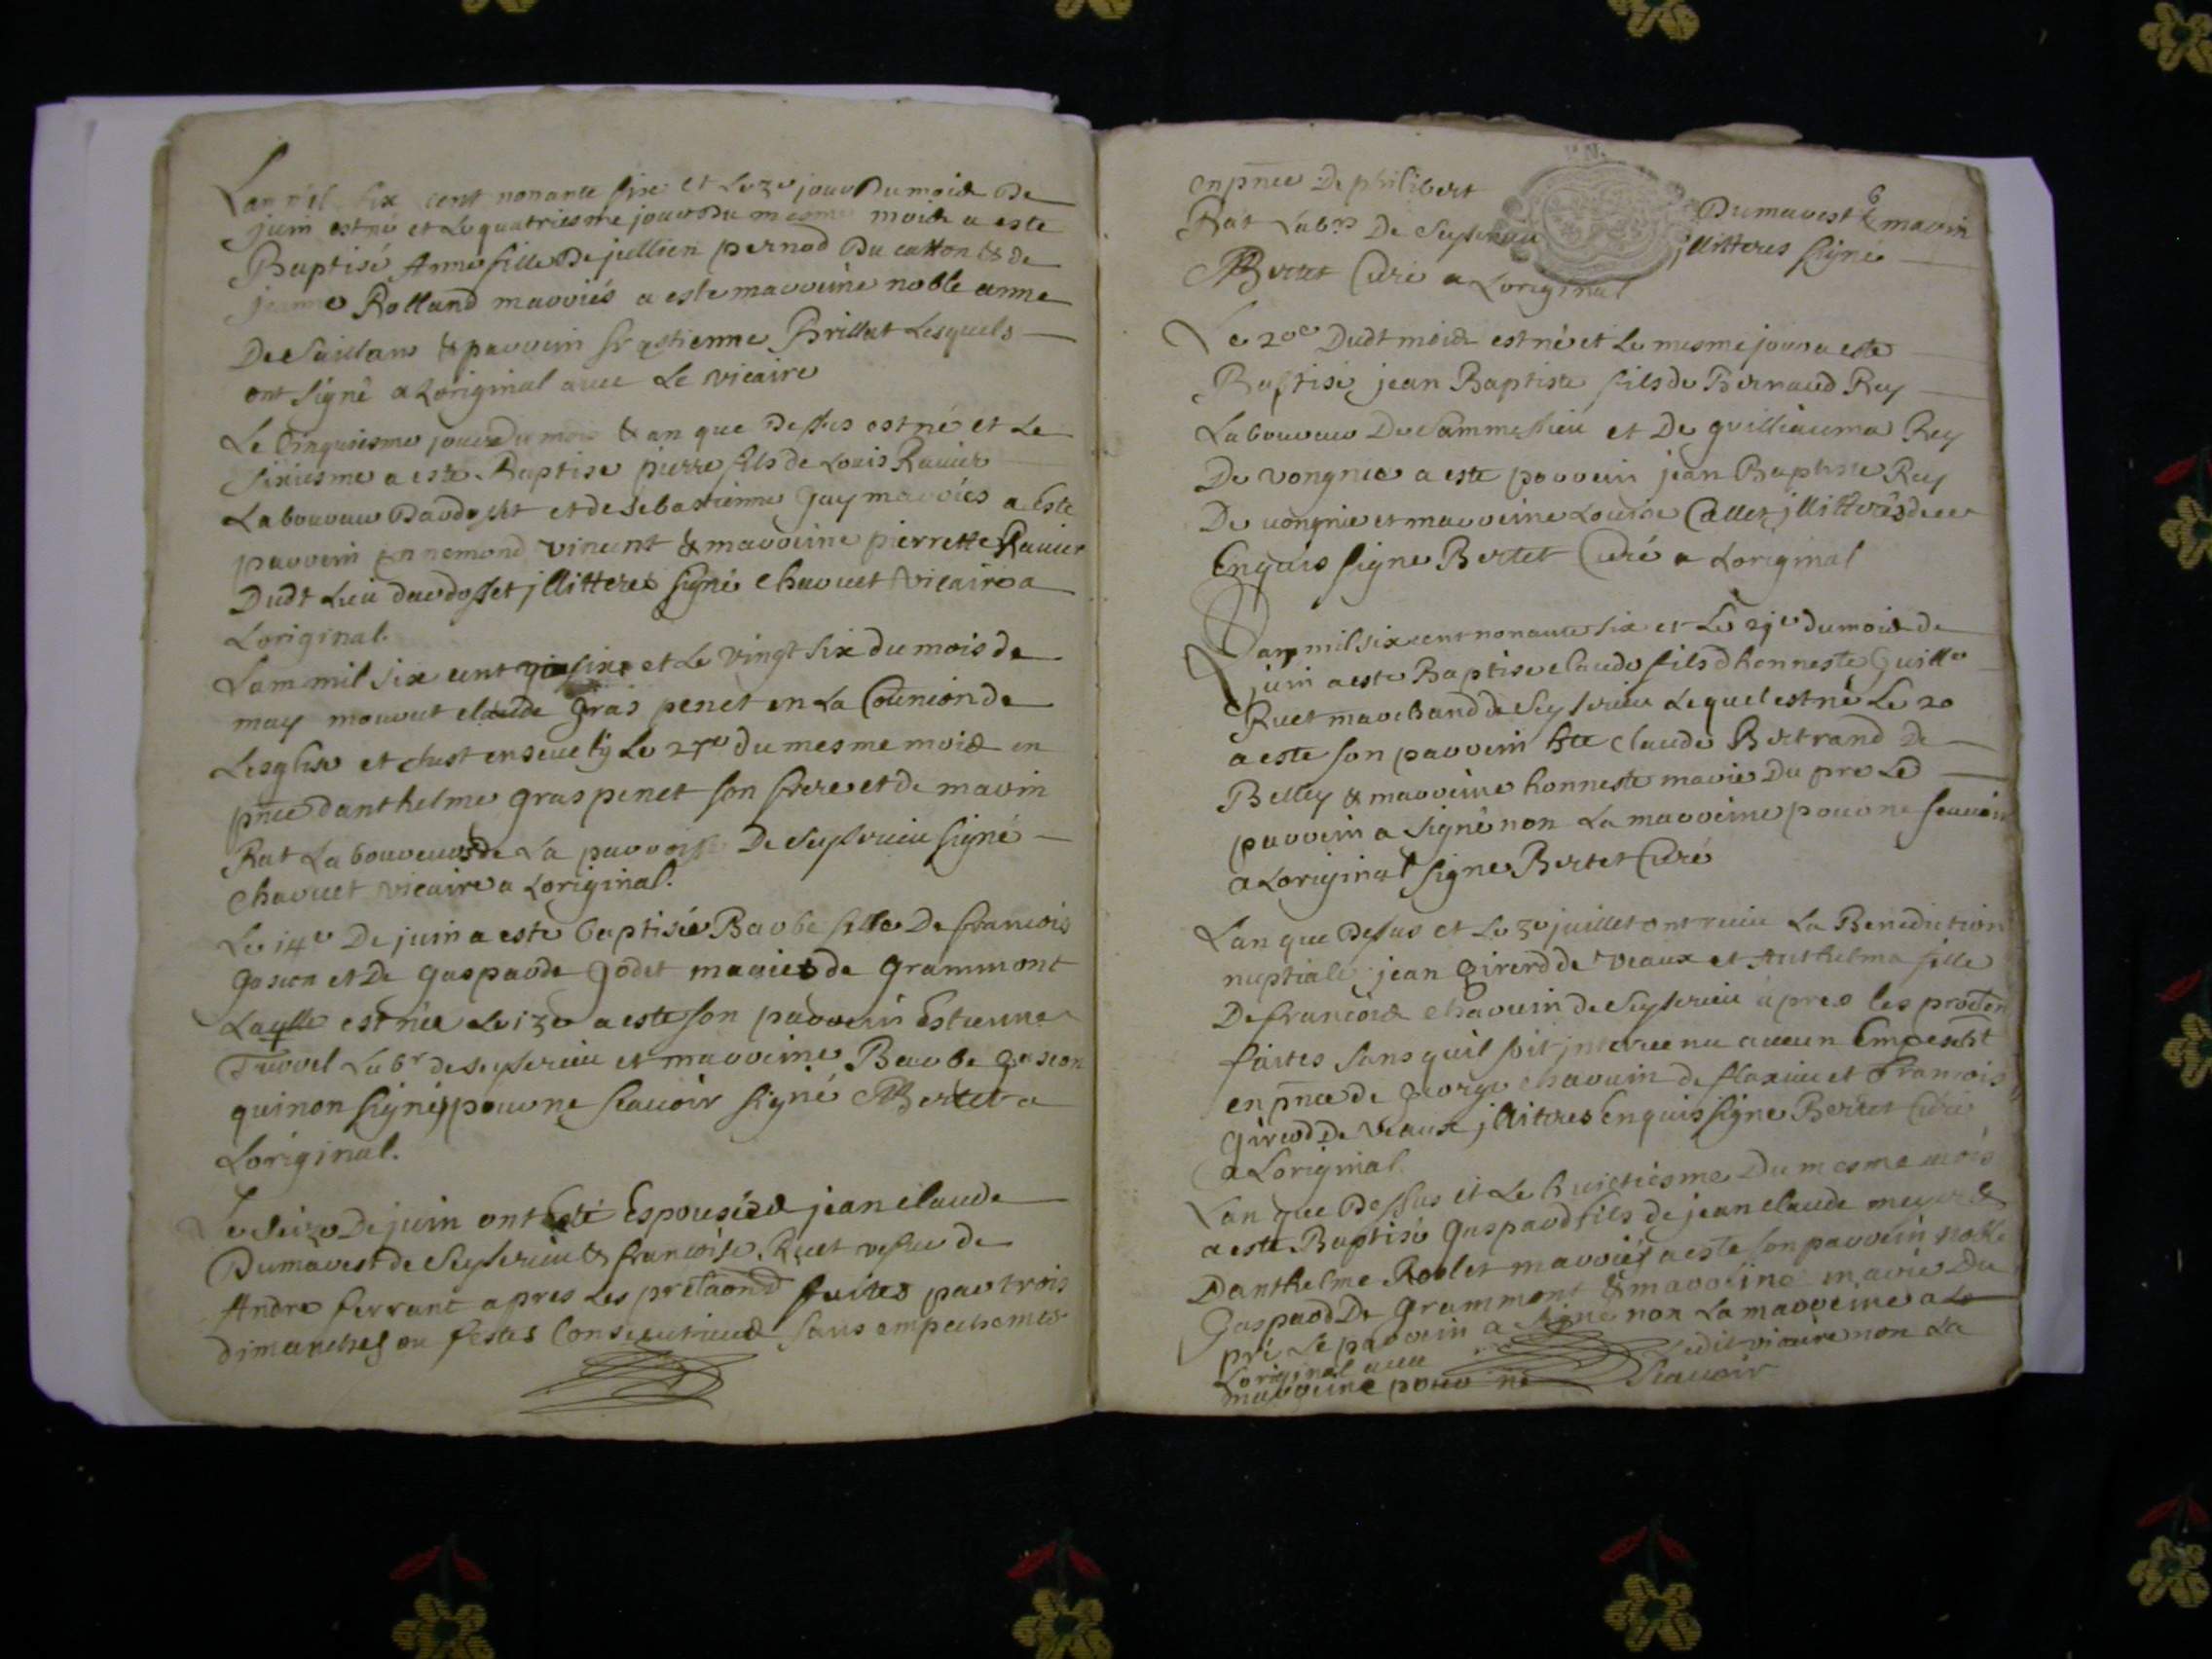 Lan mil six cent nonante six et le 3e jour du mois de
juin est né et le quatriesme jour du mesme mois a este
Baptisé Anne fille de jullien pernod du catton & de
jeanne Rolland mariés a este marreine noble anne
De Seillans & parrein sr estienne Brillat Lesquels
ont signé a Loriginal avec Le vicaire
Le Cinquiesme jour du mois & an que Dessus est né et Le
sixiesme a este Baptise pierre fils de Louis Ravier
Laboureur Dardosset et de sebastienne Jay mariés a este
parrein Ennemond vincent & marreine pierrette Ravier
Dudt Lieu dardosset jllitteres signé Charvet vicaire a
Loriginal.
Lan mil six cent six et Le vingt six du mois de
may mourut claude Gras penet en La Coūnion de
Lesglise et fust enseuely Le 27e du mesme mois en
pn̄ce danthelme gras penet son frere et de marin
Rat Laboureurs de La parroisse De Seyssrieu signé
Charvet vicaire a Loriginal.
Le 14e De juin a este baptisée Barbe fille De francois
gascon et De gasparde godet mariés de grammont
Laqlle est née Le 13e a este son parrein Estienne
Labr de seysserieu et marreine Barbe gascon
qui non signé pour ne scavoir signé Bertet a
Loriginal.
Le seize De juin ont esté Espousées jean claude
Dumarest de Seysserieu & francoise Ruet vefue de
Andre ferrant apres Les pr̄claōns faites par trois
dimanches ou festes Consecutiues sans empechemts
en pn̄ce De philibert Dumarest & marin
Rat Labrs De Seysserieu jllitteres signé
Bertet Curé a Loriginal
Le 20e Dudt mois est né et Le mesme jour a este
Baptise jean Baptiste fils de Bernard Rey
Laboureur De Sammessieu et De guilliauma Rey
De vongnes a este parrein jean Baptiste Rey
De vongnes et marreine Louise Callet jllitterés de ce
Enquis signe Bertet Curé a Loriginal
Lan mil six cent nonante six et Le 21e du mois de
juin a este Baptise claude fils dhonneste Guille
Ruet marchand de Seysserieu Lequel est né Le 20
a este son parrein hte claude Bertrand De
Belley & marreine honneste marie Du pre Le
parrein a signé non La marreine pour ne scavoir
a Loriginal signe Bertet Curé
Lan que Dessus et Le 3e juillet ont receu La Benediction
nuptiale jean Girerd de veaux et Anthelma fille
De francois Charvin de Seysserieu apres les
faites sans quil soit jnteruenu aucun Empescht
en pn̄ce de George Charvin de flaxieu et francois
Girerd De veaux jllitteres Enquis signe Bertet Curé
a Loriginal.
Lan que Dessus et Le huictiesme Du mesme mois
a este Baptisé Gaspard fils de jean claude &
Danthelme Rolet mariés a este son parrein noble
Gaspard De grammont & marreine marie Du
pré Le parrein a signé non La marreine a
Loriginal avec Ledit vicaire non La
marreine pour ne Scauoir